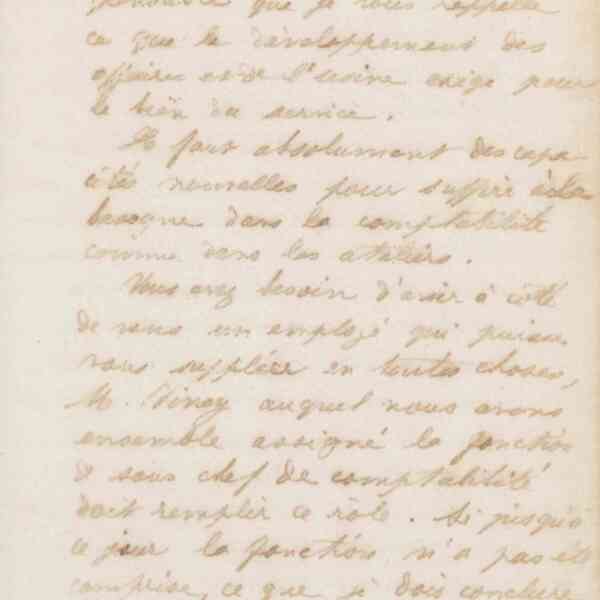 que je vous rappelle
ce que le développement des
affaires et de l'usine exige pour
le bien du service.
Il faut absolument des capa-
cités nouvelles pour suffire à la
besogne dans la comptabilité
comme dans les ateliers.
Vous avez besoin d'avoir à côté
de vous un employé qui puisse
vous suppléer en toutes choses,
M. auquel nous avons
ensemble assigné la fonction
de sous chef de comptabilité
doit remplir ce rôle. Si jusqu'à
ce jour la fonction n'a pas été
comprise, ce que je dois conclure